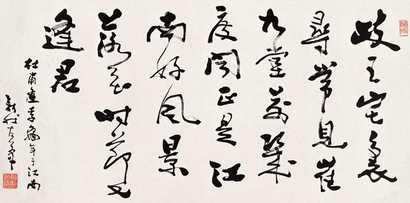 岐王宅裏
尋常見崔
九堂前幾
度聞正是江
南好風景
落花時節又
逢君
杜甫逢李龜年于江南